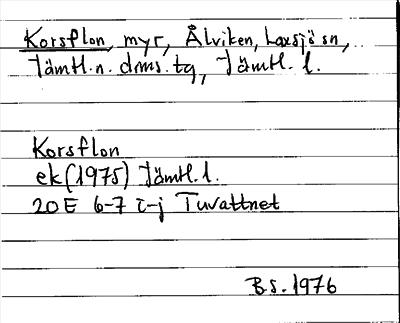 Korsflon, myr, Ålviken, Laxsjö sn,
Jämtl. n. dms. tg, Jämtl. l.
Korsflon
ek (1975) Jämtl. l.
20E 6-7 i-j Tuvattnet
B.S. 1976